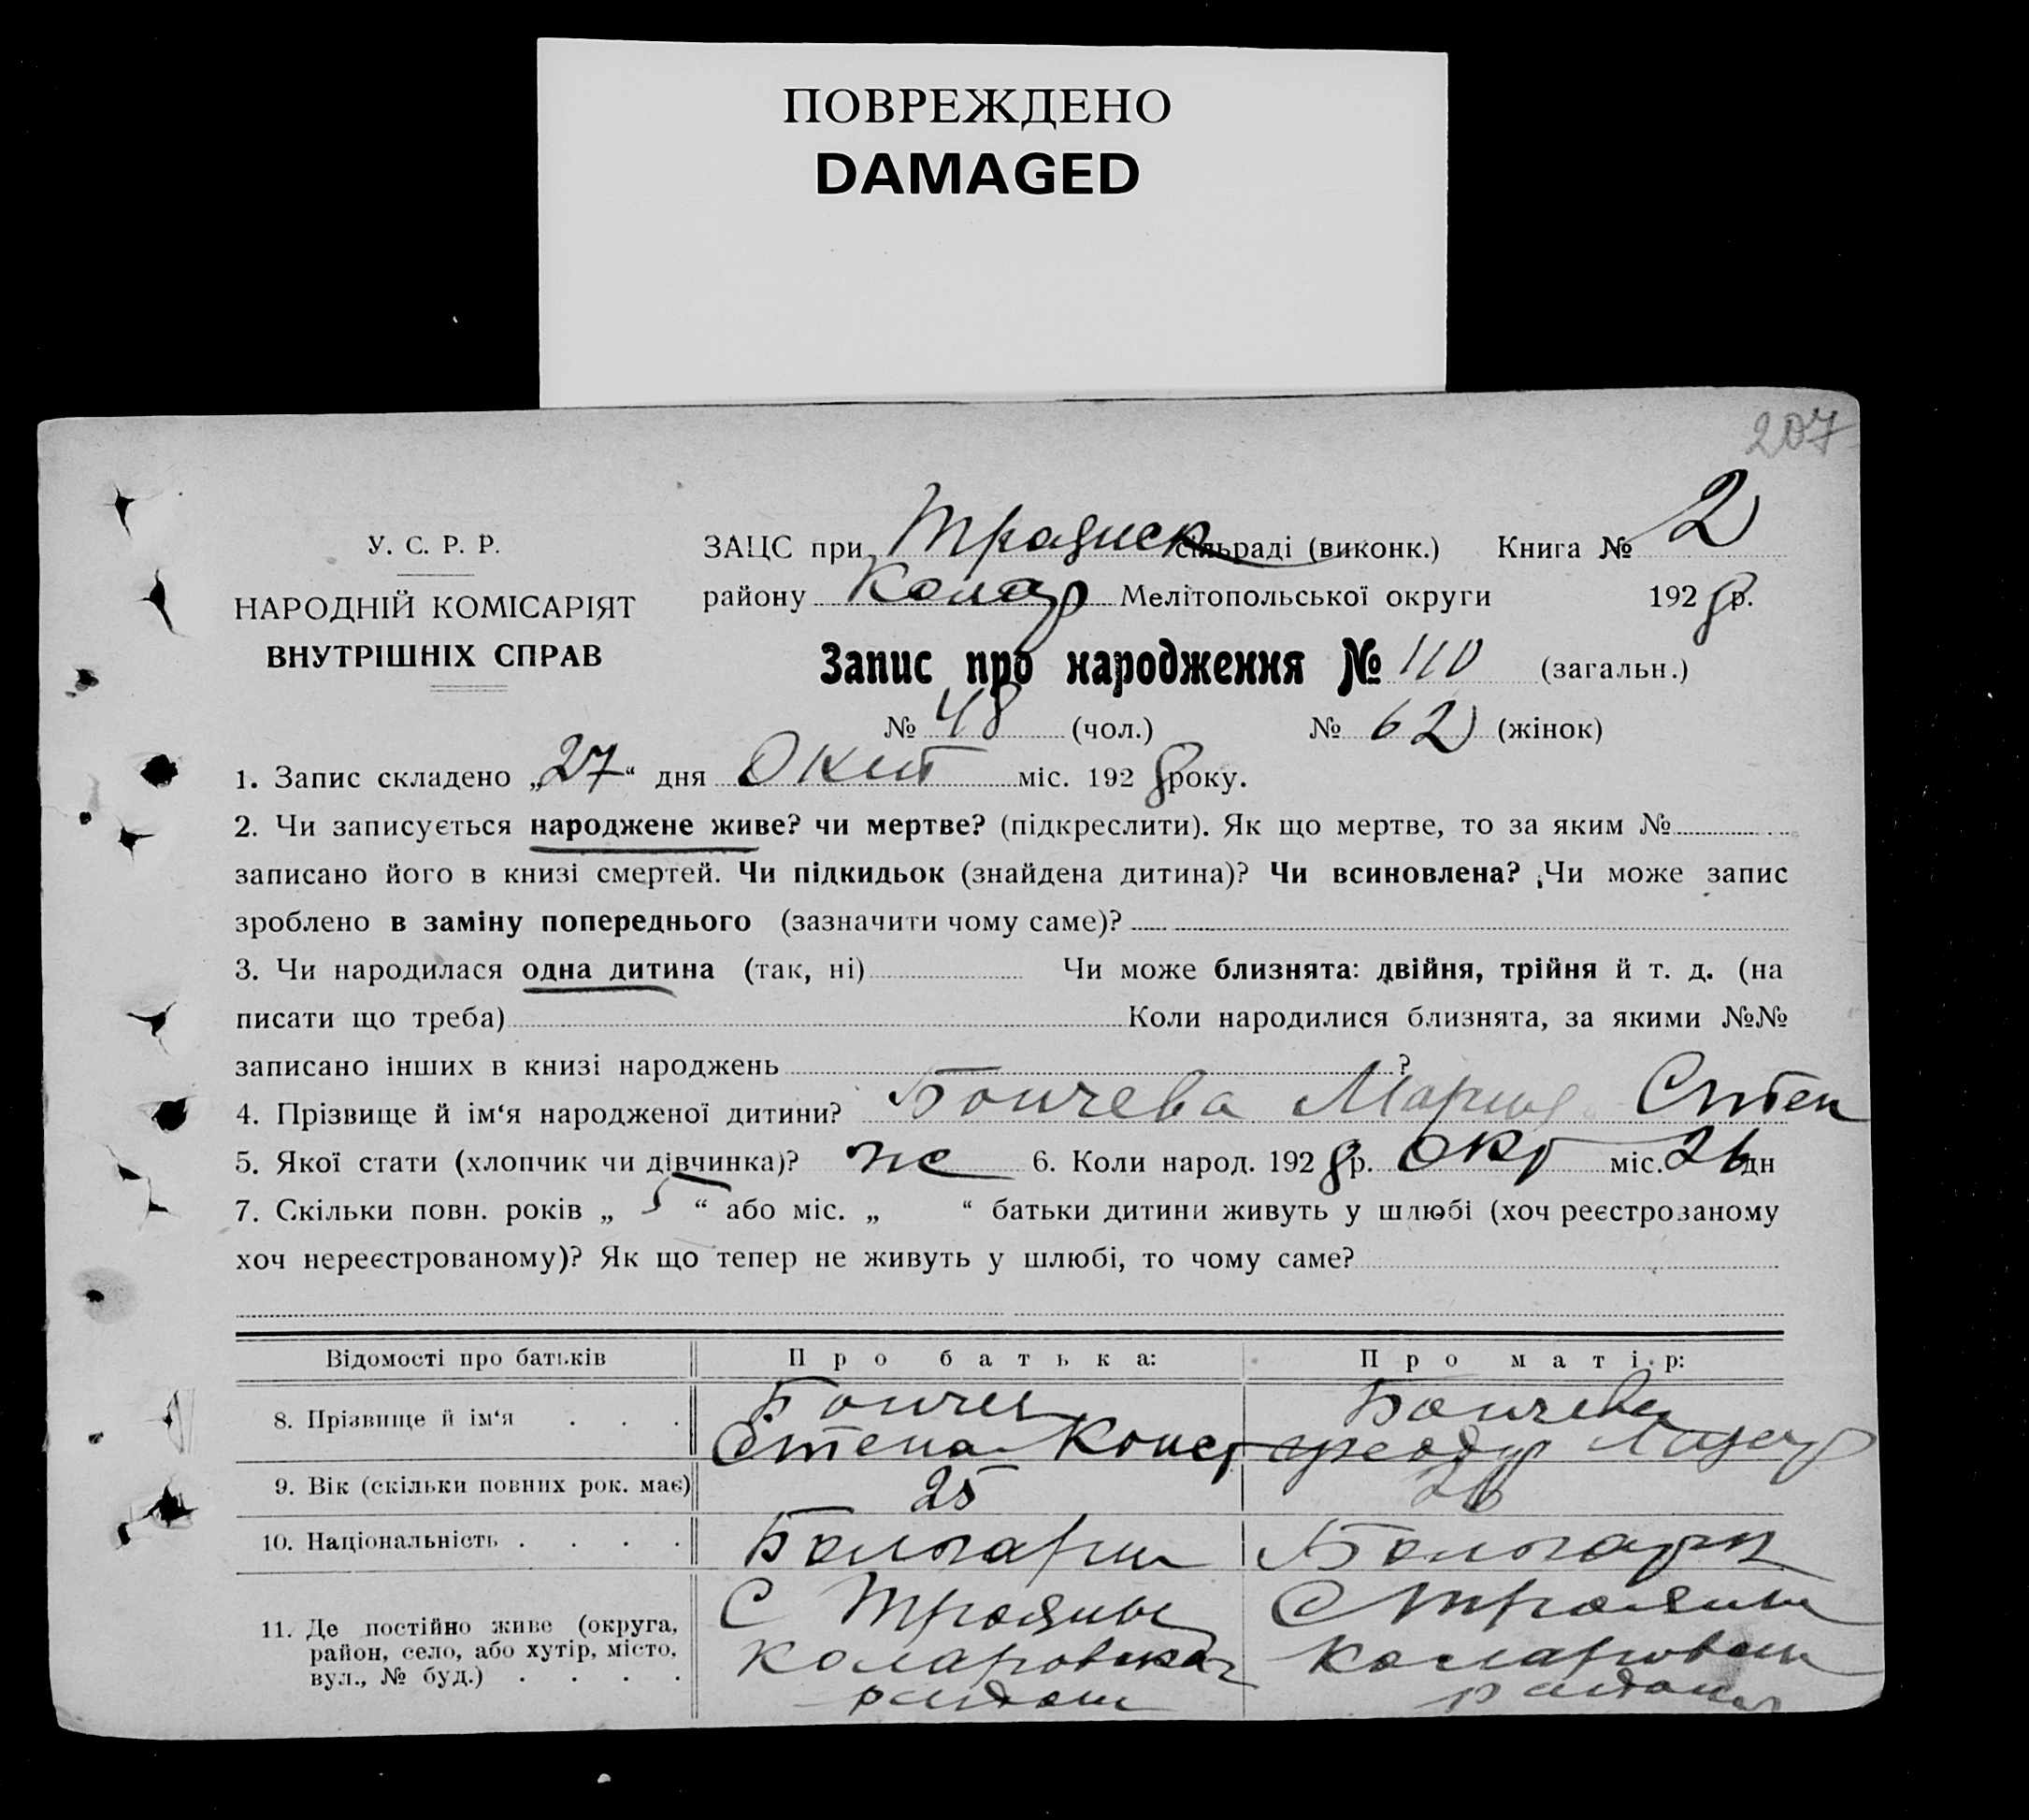 ПОВРЕЖДЕНО
DAMAGED
207
У. С. Р. Р.
НАРОДНІЙ КОМІСАРІЯТ
ВНУТРІШНІХ СПРАВ
ЗАЦС при Трояиск сільраді (виконк.) Книга № 2
району Колар Мелітопольської округи 1928 р.
Запис про народження № 110 (загальн.)
№ 48 (чол.) № 62 (жінок)
1. Запис складено „27“ дня Окт міс. 1928 року.
2. Чи записується народжене живе? чи мертве? (підкреслити). Як що мертве, то за яким №
записано його в книзі смертей. Чи підкидьок (знайдена дитина)? Чи всиновлена? Чи може запис
зроблено в заміну попереднього (зазначити чому саме)?
3. Чи народилася одна дитина (так, ні) Чи може близнята: двійня, трійня й т. д. (на
писати що треба) Коли народилися близнята, за якими №№
записано інших в книзі народжень ?
4. Прізвище й ім‘я народженої дитини? Бончева Мария Степ
5. Якої стати (хлопчик чи дівчинка)? же 6. Коли народ. 1928 р. Окт міс. 26 дн
7. Скільки повн. років „ 5 “ або міс. „ “ батьки дитини живуть у шлюбі (хоч реєстрозаному
хоч нереєстрованому)? Як що тепер не живуть у шлюбі, то чому саме?
Відомості про батьків Про батька: Про матір:
8. Прізвище й ім‘я Бончев Бончева
Степан Конст Феодор Лазар
9. Вік (скільки повних рок. має) 25 26
10. Національність Болгарин Болгарк
11. Де постійно живе (округа, С Трояны С Трояны
район, село, або хутір, місто, Коларовская Коларовск
вул., № буд.) район района